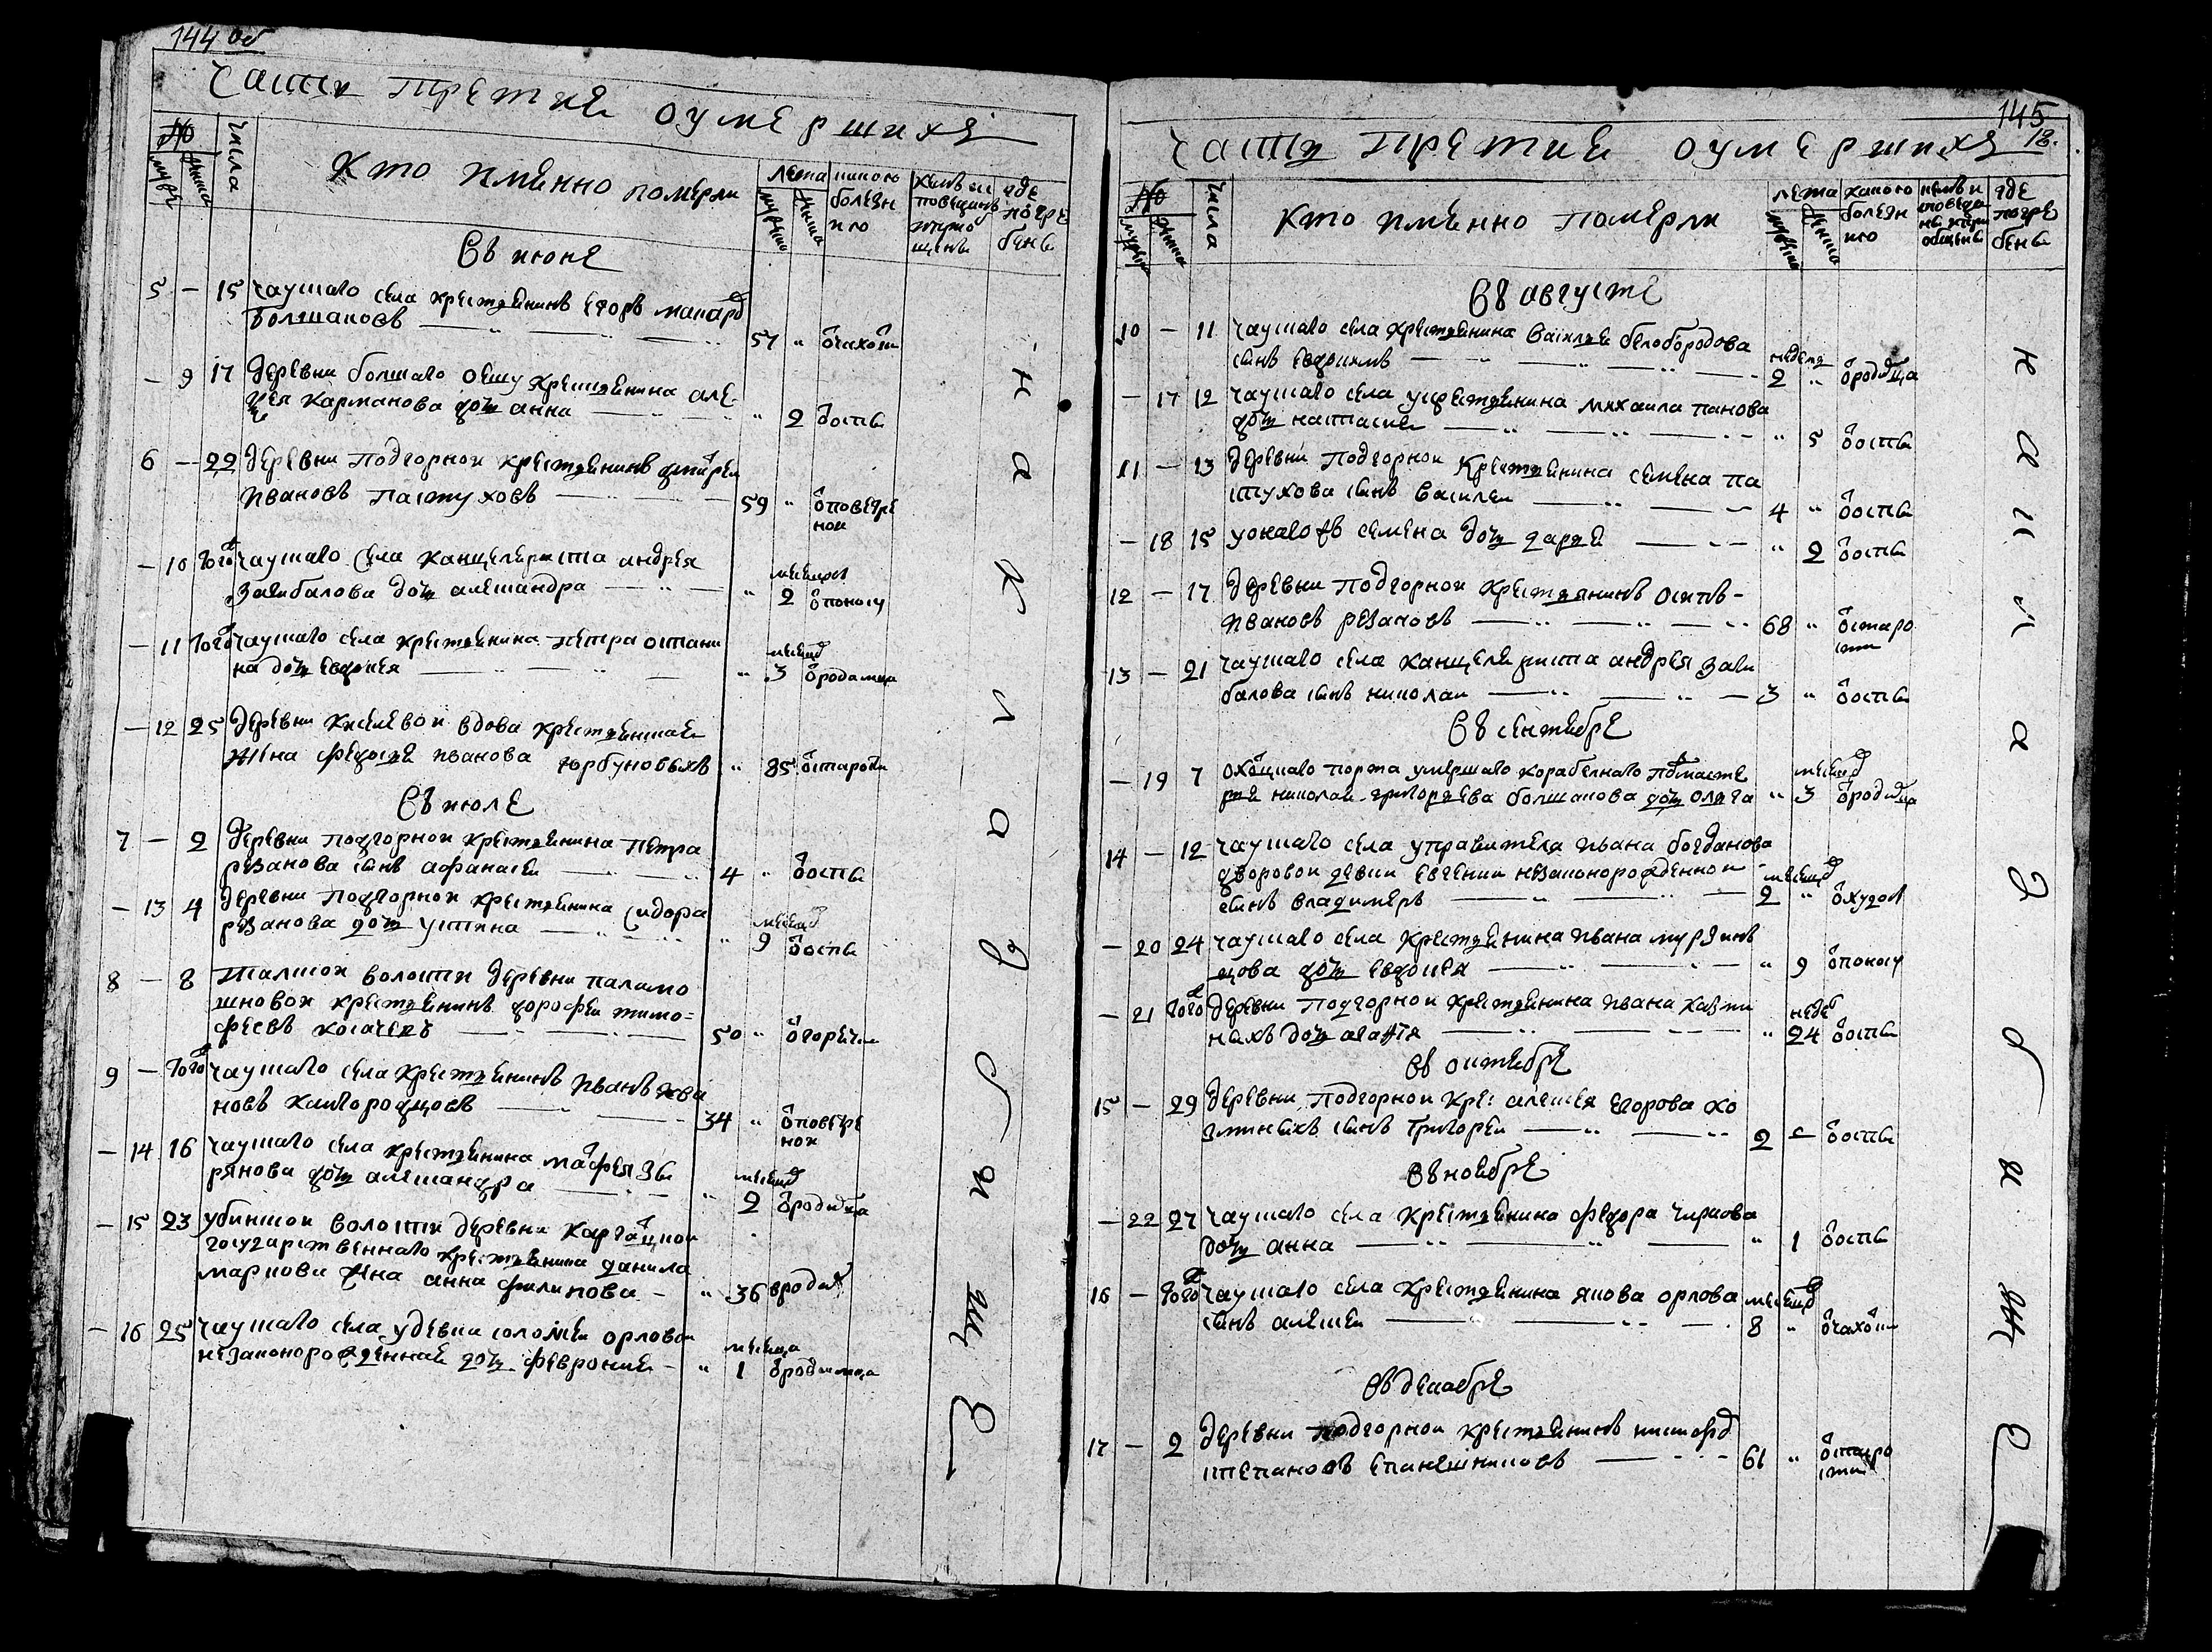 144 об
Часть третия о умершихъ
№
Числа
Кто именно померли
Лета
какою болезнию
кемъ исповеданъ и приобщенъ
где погребенъ
Въ июне
5 — 15 Чаускаго села крестьянинъ Егоръ Макаров
Болшаковъ — 57 " от чахотки
— 9 17 Деревни Болшаго Оешу крестьянина Але-
ксея Карманова дочь Анна — " 2 от оспы
6 — 22 Деревни Подгорной крестьянинъ Дмитрей
Ивановъ Пастуховъ — 59 " от поветре
ной
— 10 Того Чаускаго села канцеляриста Андрея
Завибалова дочь Александра — " месяцов 2 от поносу
— 11 Того Чаускаго села крестьянина Петра Остани
на дочь Евдокея — " месяцов 3 от родимца
— 12 25 Деревни Киселевой вдова крестьянская
жена Федосья Иванова Горбуновыхъ " 85 от старости
Въ июле
7 — 2 Деревни Подгорной крестьянина Петра
Резанова сынъ Афанасей — 4 " от оспы
— 13 4 Деревни Подгорной крестьянина Сидора
Резанова дочь Устина — " месяцов 9 от оспы
8 — 8 Тальской волости деревни Паламо
шновой крестьянинъ Дорофей Тимо=
феевъ Косачевъ — 50 " от горячки
9 — Того Чаускаго села крестьянинъ Иванъ Ива
новъ Кайгородцовъ — 34 " от поветре
ной
— 14 16 Чаускаго села крестьянина Матфея Зы
рянова дочь Александра — " месяцов 2 от родимца
— 15 23 Убинской волости деревни Каргацкой
государственнаго крестьянина Данила
Маркова жена Анна Филипова — " 36 в родах
— 16 25 Чаускаго села у девки Соломеи Орловой
незаконорожденная дочь Феврония — " месяца 1 от родимца
На кладбище
145
18.
Часть третия о умершихъ
№
Числа
Кто именно померли
Лета
какою болезнию
кемъ исповеданъ и приобщенъ
где погребенъ
Въ августе
10 — 11 Чаускаго села крестьянина Василья Белобородова
сынъ Евдокимъ — недель 2 " от родимца
— 17 12 Чаускаго села у крестьянина Михаила Панова
дочь Настасия — " 5 от оспы
11 — 13 Деревни Подгорной крестьянина Семена Па
стухова сынъ Василей — 4 " от оспы
— 18 15 У онаго жъ Семена дочь Дарья — " 2 от оспы
12 — 17 Деревни Подгорной крестьянинъ Осипъ -
Ивановъ Резановъ — 68 " от старо
сти
13 — 21 Чаускаго села канцеляриста Андрея Зави
балова сынъ Николай — 3 " от оспы
Въ сентябре
— 19 7 Охоцкаго порта умершаго корабелнаго подмасте
рья Николая Григорьева Болшакова дочь Олга " месяцов 3 от родимца
14 — 12 Чаускаго села управителя Ивана Богданова
дворовой девки Евгении незаконорожденной
сынъ Владимеръ — месяцов 2 " от худобы
— 20 24 Чаускаго села крестьянина Ивана Мурзин
цова дочь Евдокея — " 9 от поносу
— 21 Того Деревни Подгорной крестьянина Ивана Казми
ныхъ дочь Агафья — " недел 24 от оспы
Въ октябре
15 — 29 Деревни Подгорной кре: Алексея Егорова Ко
зминыхъ сынъ Григорей — 2 — от оспы
Въ ноябре
— 22 27 Чаускаго села крестьянина Федора Чиркова
дочь Анна — " 1 от оспы
16 — Того Чаускаго села крестьянина Якова Орлова
сынъ Алексей — месяцов 8 " от чахотки
Въ декабре
17 — 2 Деревни Подгорной крестьянинъ Никифор
Степановъ Епанешниковъ — 61 " от старо
сти
На кладбище